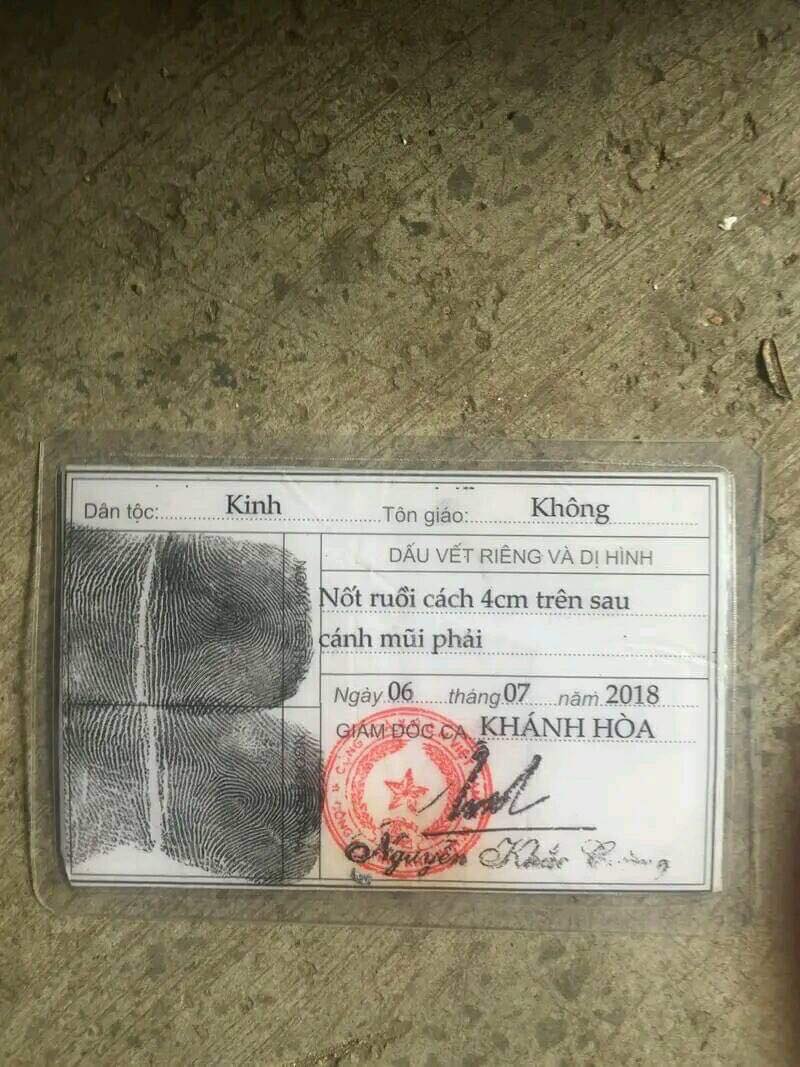 Dân tộc: Kinh Tôn giáo: Không
DẤU VẾT RIÊNG VÀ DỊ HÌNH
Nốt ruồi cách 4cm trên sau
cánh mũi phải
Ngày 06 tháng 07 năm 2018
GIÁM ĐỐC CA KHÁNH HÒA
Nguyễn Khắc